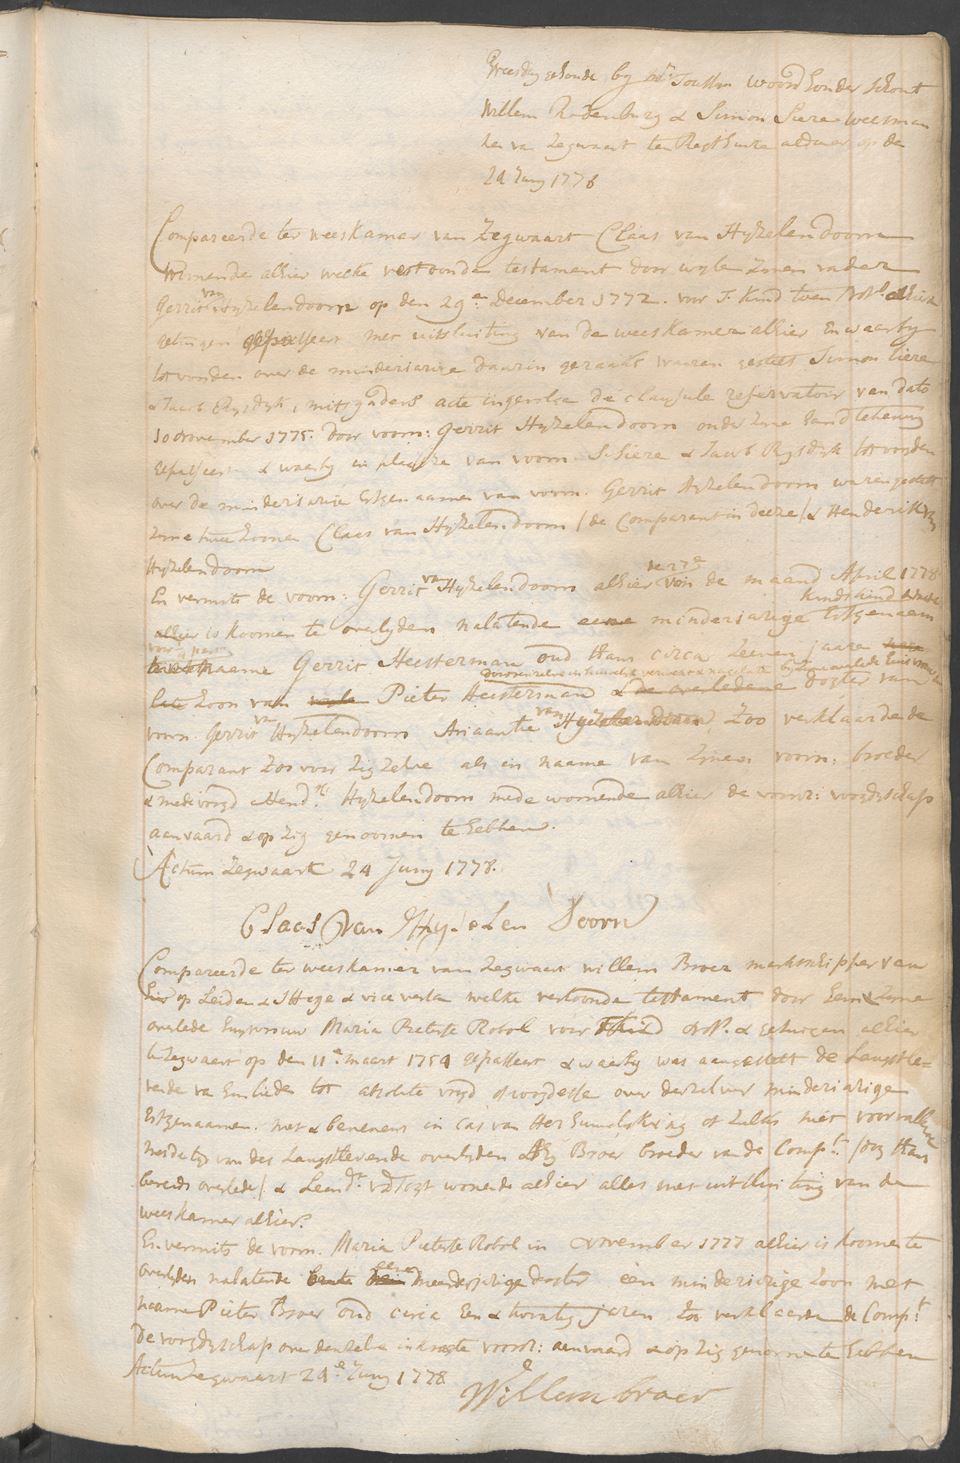 Weesdag gehoude by Mr Toussn Woordhouder schout
Willem Rodenburg & Simon Siere weesman
nen van Zegwaart ten Regthuise aldaar op de
24 Juny 1778
Compareerde ter weeskamer van Zegwaart Claas van Hyselendoorn
wonende alhier welke vertoonde testament door wyle zynen vader
Gerrit van Hyselendoorn op den 29e december 1772. voor T. Kind toen Nots. alhier
getuigen gepasseert met uitsluiting van de weeskamer alhier en waarby
tot voogden over de minderjarige daarin geraakt waaren gestelt Simon Siere
& Jacob Rysdyk, mitsgaders acte ingevolge de clausule reservatoir van dato
10 November 1775. door voorn: Gerrit Hyselendoorn onder zyne handtekening
gepasseert & waarby in plaatze van voorn. S. Siere & Jacob Rysdyk tot voogden
over de minderjarige Erfgenaamen van voorn. Gerrit Hyselendoorn waren gestelt
zyne twee zoonen Claas van Hyselendoorn / de Comparant in deeze / & Hendrik van
Hyselendoorn
En vermits de voorn: Gerrit van Hyselendoorn alhier de 27e van de maand April 1778
alhier is koomen te overlyden nalatende eene minderjarige Erfgenaam
naame Gerrit Heesterman oud thans circa zeeven jaaren
zoon van Pieter Heesterman & de overledene dogter van
voorn. Gerrit van Hyselendoorn Ariaantie van Hyselendoorn, Zoo verklaarde de
Comparant zoo voor zig zelve als in naame van zynen voorn: broeder
& mede voogd Hendk. Hyselendoorn mede wonende alhier de voorn: voogdyschap
aanvaard & op zig genoomen te hebben.
Actum Zegwaart 24 Juny 1778.
Claas van Hyselen Doorn
Compareerde ter weeskamer van Zegwaart Willem Broer marktschipper van
hier op Leiden & 's Hage & vice versa welke vertoonde testament door hem & zyne
overlede huysvrouw Maria Pieterse Robol voor T. Kind Nots. & getuigen alhier
te Zegwaart op den 11e maart 1754 gepasseert & waarby was aangestelt de Langstle=
vende van hun lieden tot absolute voogd of voogdesse over derzelver minderjarige
Erfgenaamen. met & benevens in cas van Her huwelyking of zulks niet voorvallende
met de tyd van des Langstlevende overlyden Broer broeder van de Compt. / dog thans
bereids overlede / & Leendt. v.d. Togt wonende alhier alles met uitsluiting van de
weeskamer alhier.
En vermits de voorn. Maria Pieterse Robol in November 1777 alhier is koomen te
overlyden nalatende eene meerderjarige dogter een minderjarige zoon met
naame Pieter Broer oud circa een & twintig jaren Zoo verklaarde de Compt.
de voogdyschap over denzelve in kragte voorsz: aanvaard & op zig genoomen te hebben
Actum Zegwaart 24e Juny 1778
Willem broer